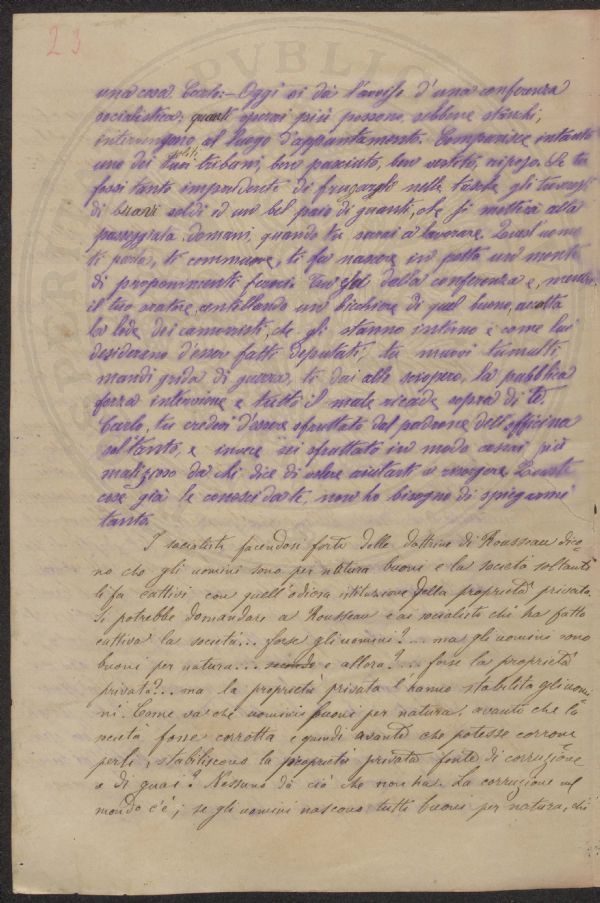 23
una cosa Carlo:- Oggi si dà l'avviso d'una conferenza
socialistica, quanti operai più possono, sebbene stanchi,
intervengono al luogo d'appuntamento. Comparisce intanto
uno dei tuoi soliti tribuni, ben pasciuto, ben vestito, riposo. Se tu
fossi tanto imprudente di frugargli nelle tasche gli troveresti
di buoni soldi ed un bel paio di guanti, che si metterà alla
passeggiata domani, quando tu sarai a lavorare. Quest'uomo
ti parla, ti commuove, ti fa nascere in petto un monte
di proponimenti feroci. Tu esci dalla conferenza e, mentre
il tuo oratore, centellando un bicchiere di quel buono, ascolta
la lode dei camerati, che gli stanno intorno e come lui
desiderano d'essere fatti deputati, tu muovi tumulti,
mandi grida di guerra, ti dai allo sciopero, la pubblica
forza interviene e tutto il male ricade sopra di te.
Carlo, tu credevi d'essere sfruttato dal padrone dell'officina
soltanto, e invece sei sfruttato in modo assai più
malizioso da chi dice di volere aiutarti a risorgere. Queste
cose già le conosci da te, non ho bisogno di spiegarmi
tanto.
I socialisti facendosi forti delle dottrine di Rousseau dico-
no che gli uomini sono per natura buoni e la società soltanto
li fa cattivi con quell'odiosa istituzione della proprietà privata.
Si potrebbe domandare a Rousseau e ai socialisti chi ha fatto
cattiva la società... forse gli uomini?.... ma gli uomini sono
buoni per natura... e allora?.... forse la proprietà
privata?... ma la proprietà privata l'hanno stabilita gli uomi
ni. Come va che uomini buoni per natura, avanti che la
società fosse corrotta e quindi avanti che potesse corrom
perli, stabiliscono la proprietà privata fonte di corruzione
e di guai? Nessuno dà ciò che non ha. La corruzione nel
mondo c'è; se gli uomini nascono tutti buoni per natura, chi